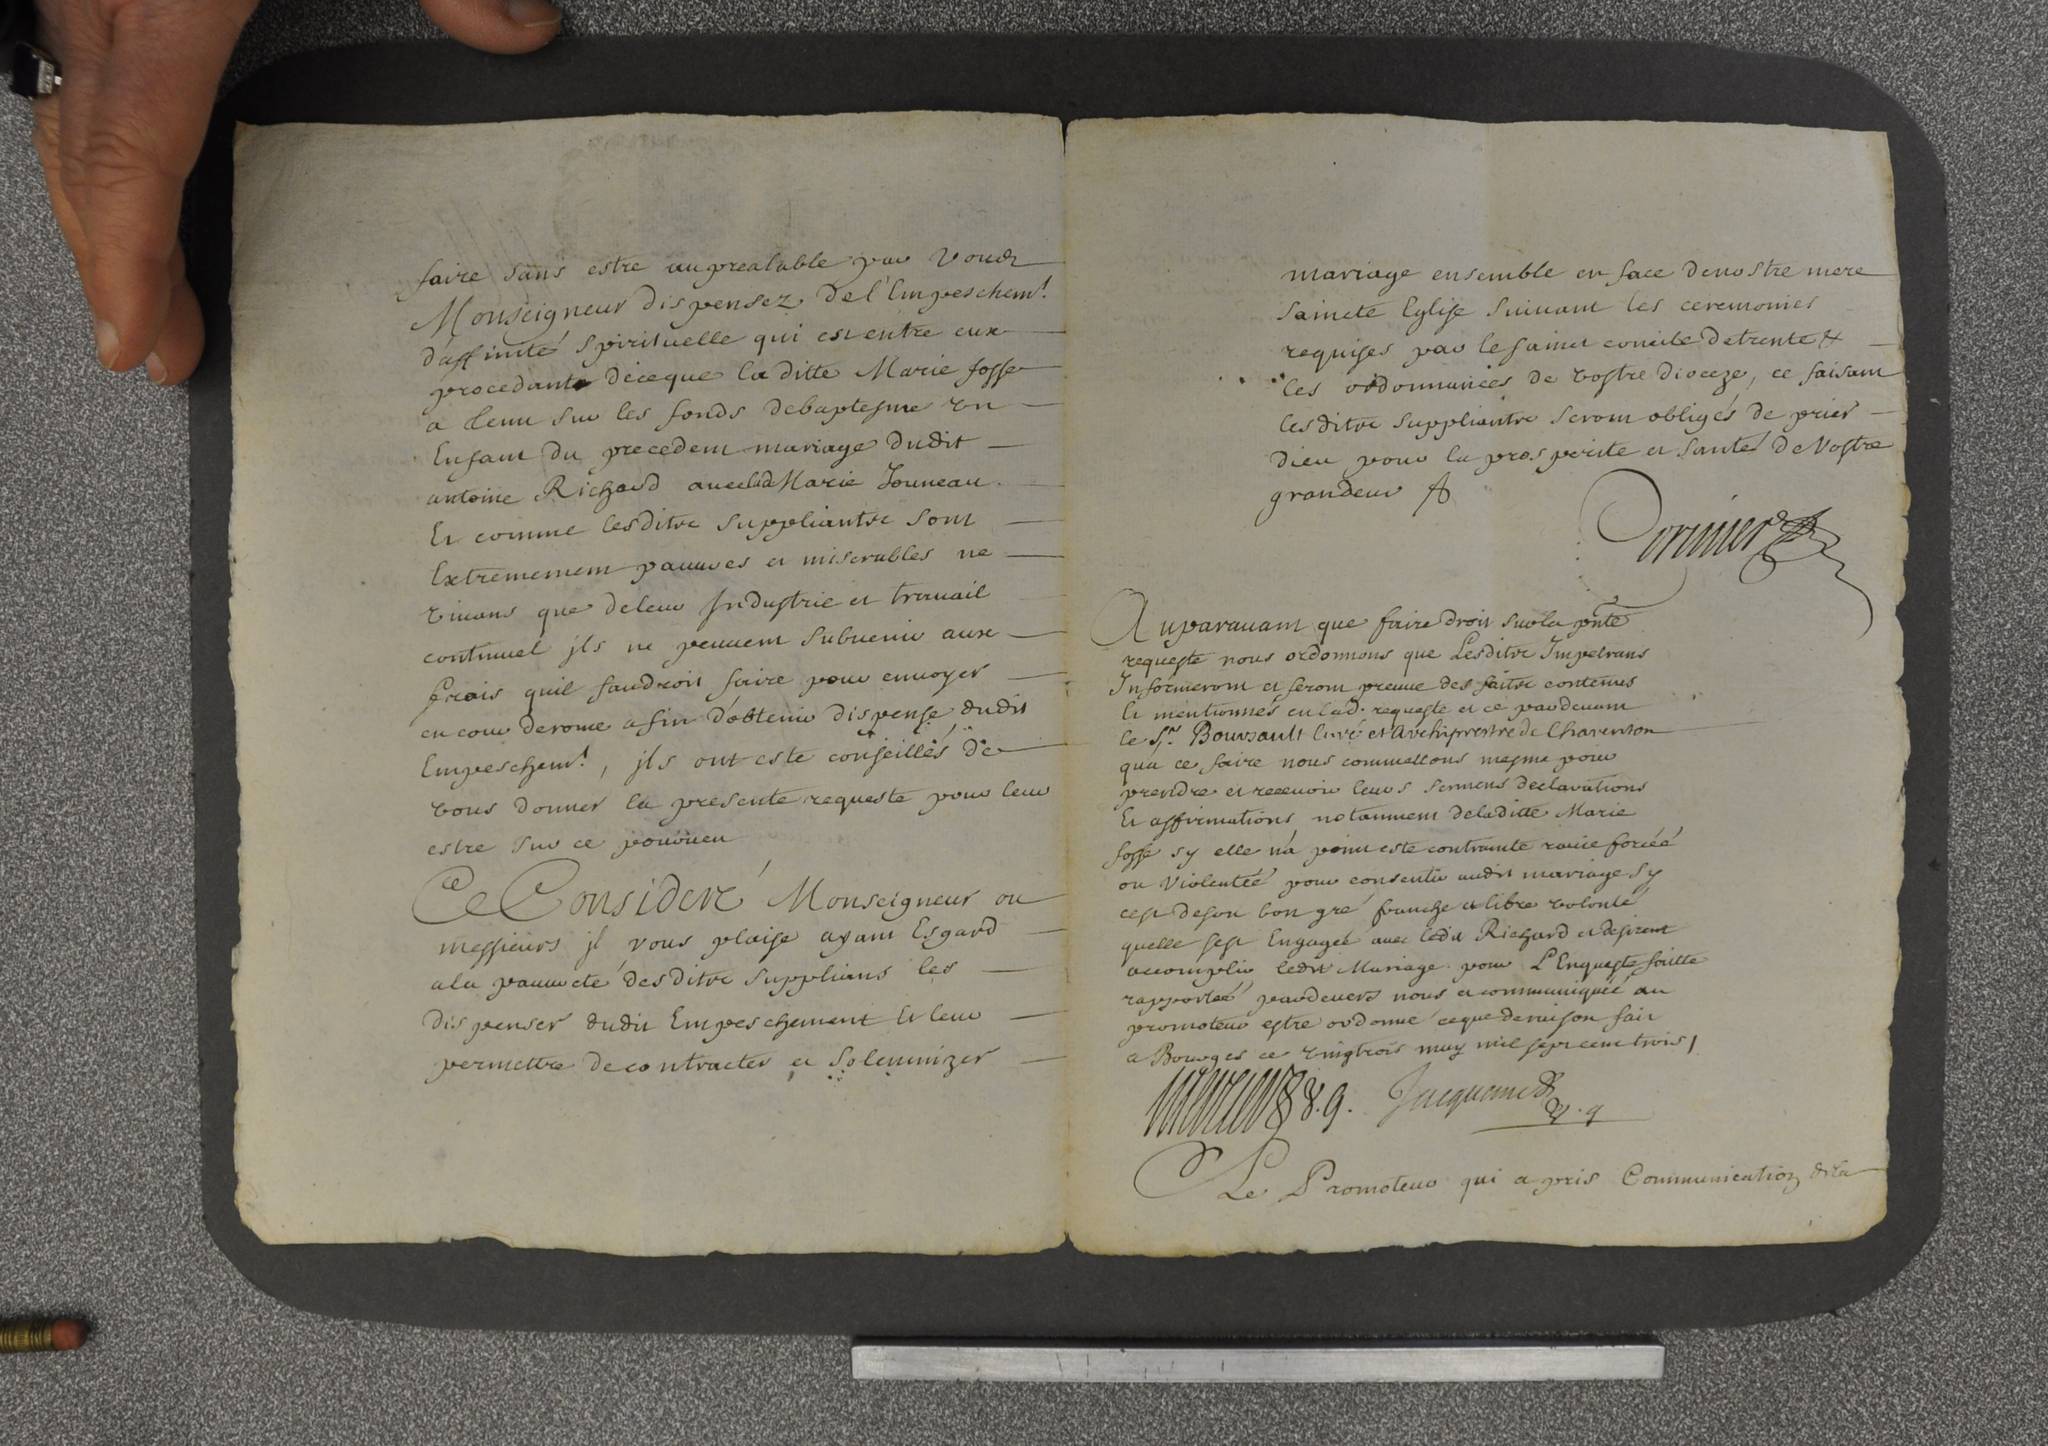 faire sans estre au prealable par vous
Monseigneur dispensez de l'Empeschem.t
d'affinité spirituelle qui est entre eux
procedante de ce que la ditte Marie fosse
a tenu sur les fonds de baptesme un
Enfant du precedent mariage dudit
antoine Richard avec lad Marie Jouneau.
Et comme lesdits suppliants sont
Extremement pauvres et miserables ne
vivans que de leur Industrie et travail
continuel jls ne peuvent subvenir aux
frais quil faudroit faire pour envoyer
en cour de rome afin d'obtenir dispense dudit
Empeschem.t, jls ont esté conseillés de
vous donner la presente requeste pour leur
estre sur ce pourveu
Ce Consideré Monseigneur ou
messieurs jl vous plaise ayant Esgard
a la pauvreté desdits supplians les
dispenser dudit Empeschement Et leur
permettre de contracter et solemnizer
mariage ensemble en face de nostre mere
saincte Eglise suivant les ceremonies
requises par le sainct concile de trente &
les ordonnances de vostre dioceze, ce faisant
lesdits suppliants seront obligés de prier
dieu pour la prosperité et santé de Vostre
grandeur
Auparavant que faire droit sur la pnte
requeste nous ordonnons que Lesdits Impetrans
Informeront et feront preuve des faits contenus
Et mentionnés en lad. requeste et ce pardevant
le Sr. Boursault Curé et Archiprestre de Charenton
qua ce faire nous commettons mesme pour
prendre et recevoir leurs sermens declarations
Et affirmations notamment de laditte Marie
fosse sy elle na point esté contrainte ravie forcéé
ou Violentéé pour consentir audit mariage sy
cest de son bon gré franche et libre volonté
quelle sest Engagéé avec ledit Richard et desirent
accomplir ledit Mariage pour L'Enqueste faitte
rapportéé pardevers nous et communiquéé au
promoteur estre ordonné ce que de raison fait
a Bourges ce vingtrois may mil sept cent trois /
v.g. Jacquemet
v.g
Le Promoteur qui a pris Communication de la